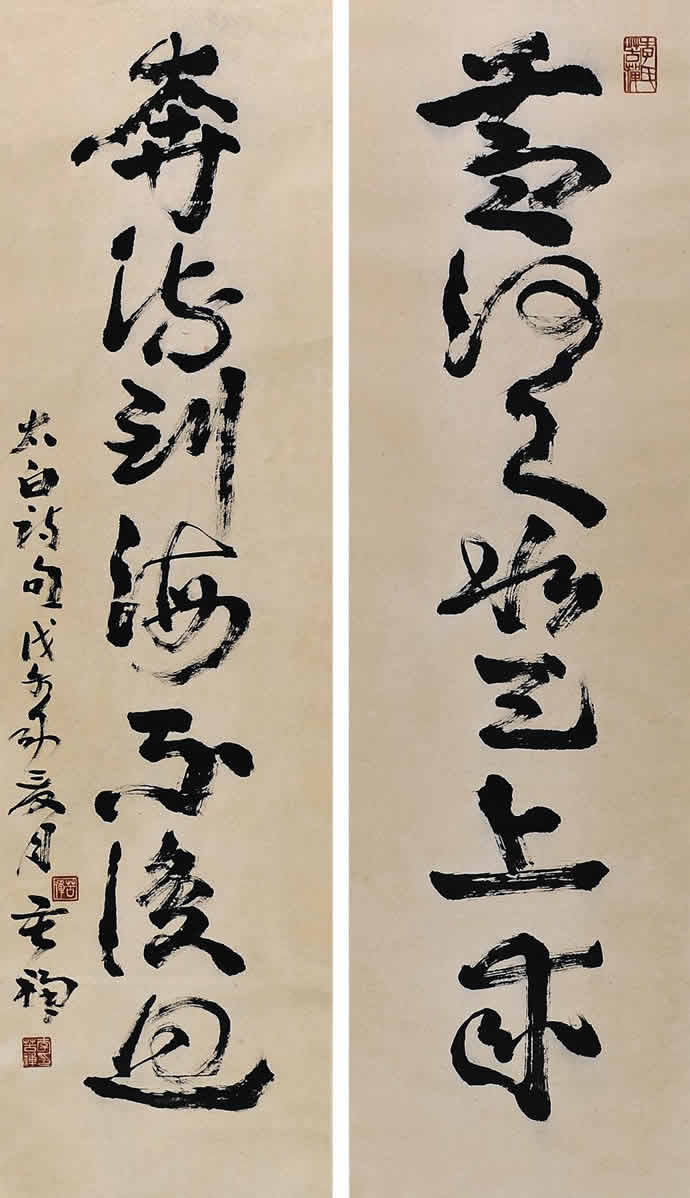 黃河之水天上來
奔流到海不復迴
太白詩句戊午年夏月苦禪